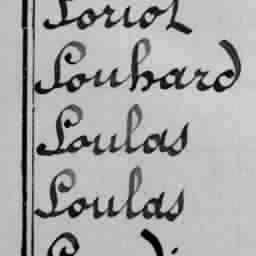 Loriot
Louhard
Loulas
Loulas